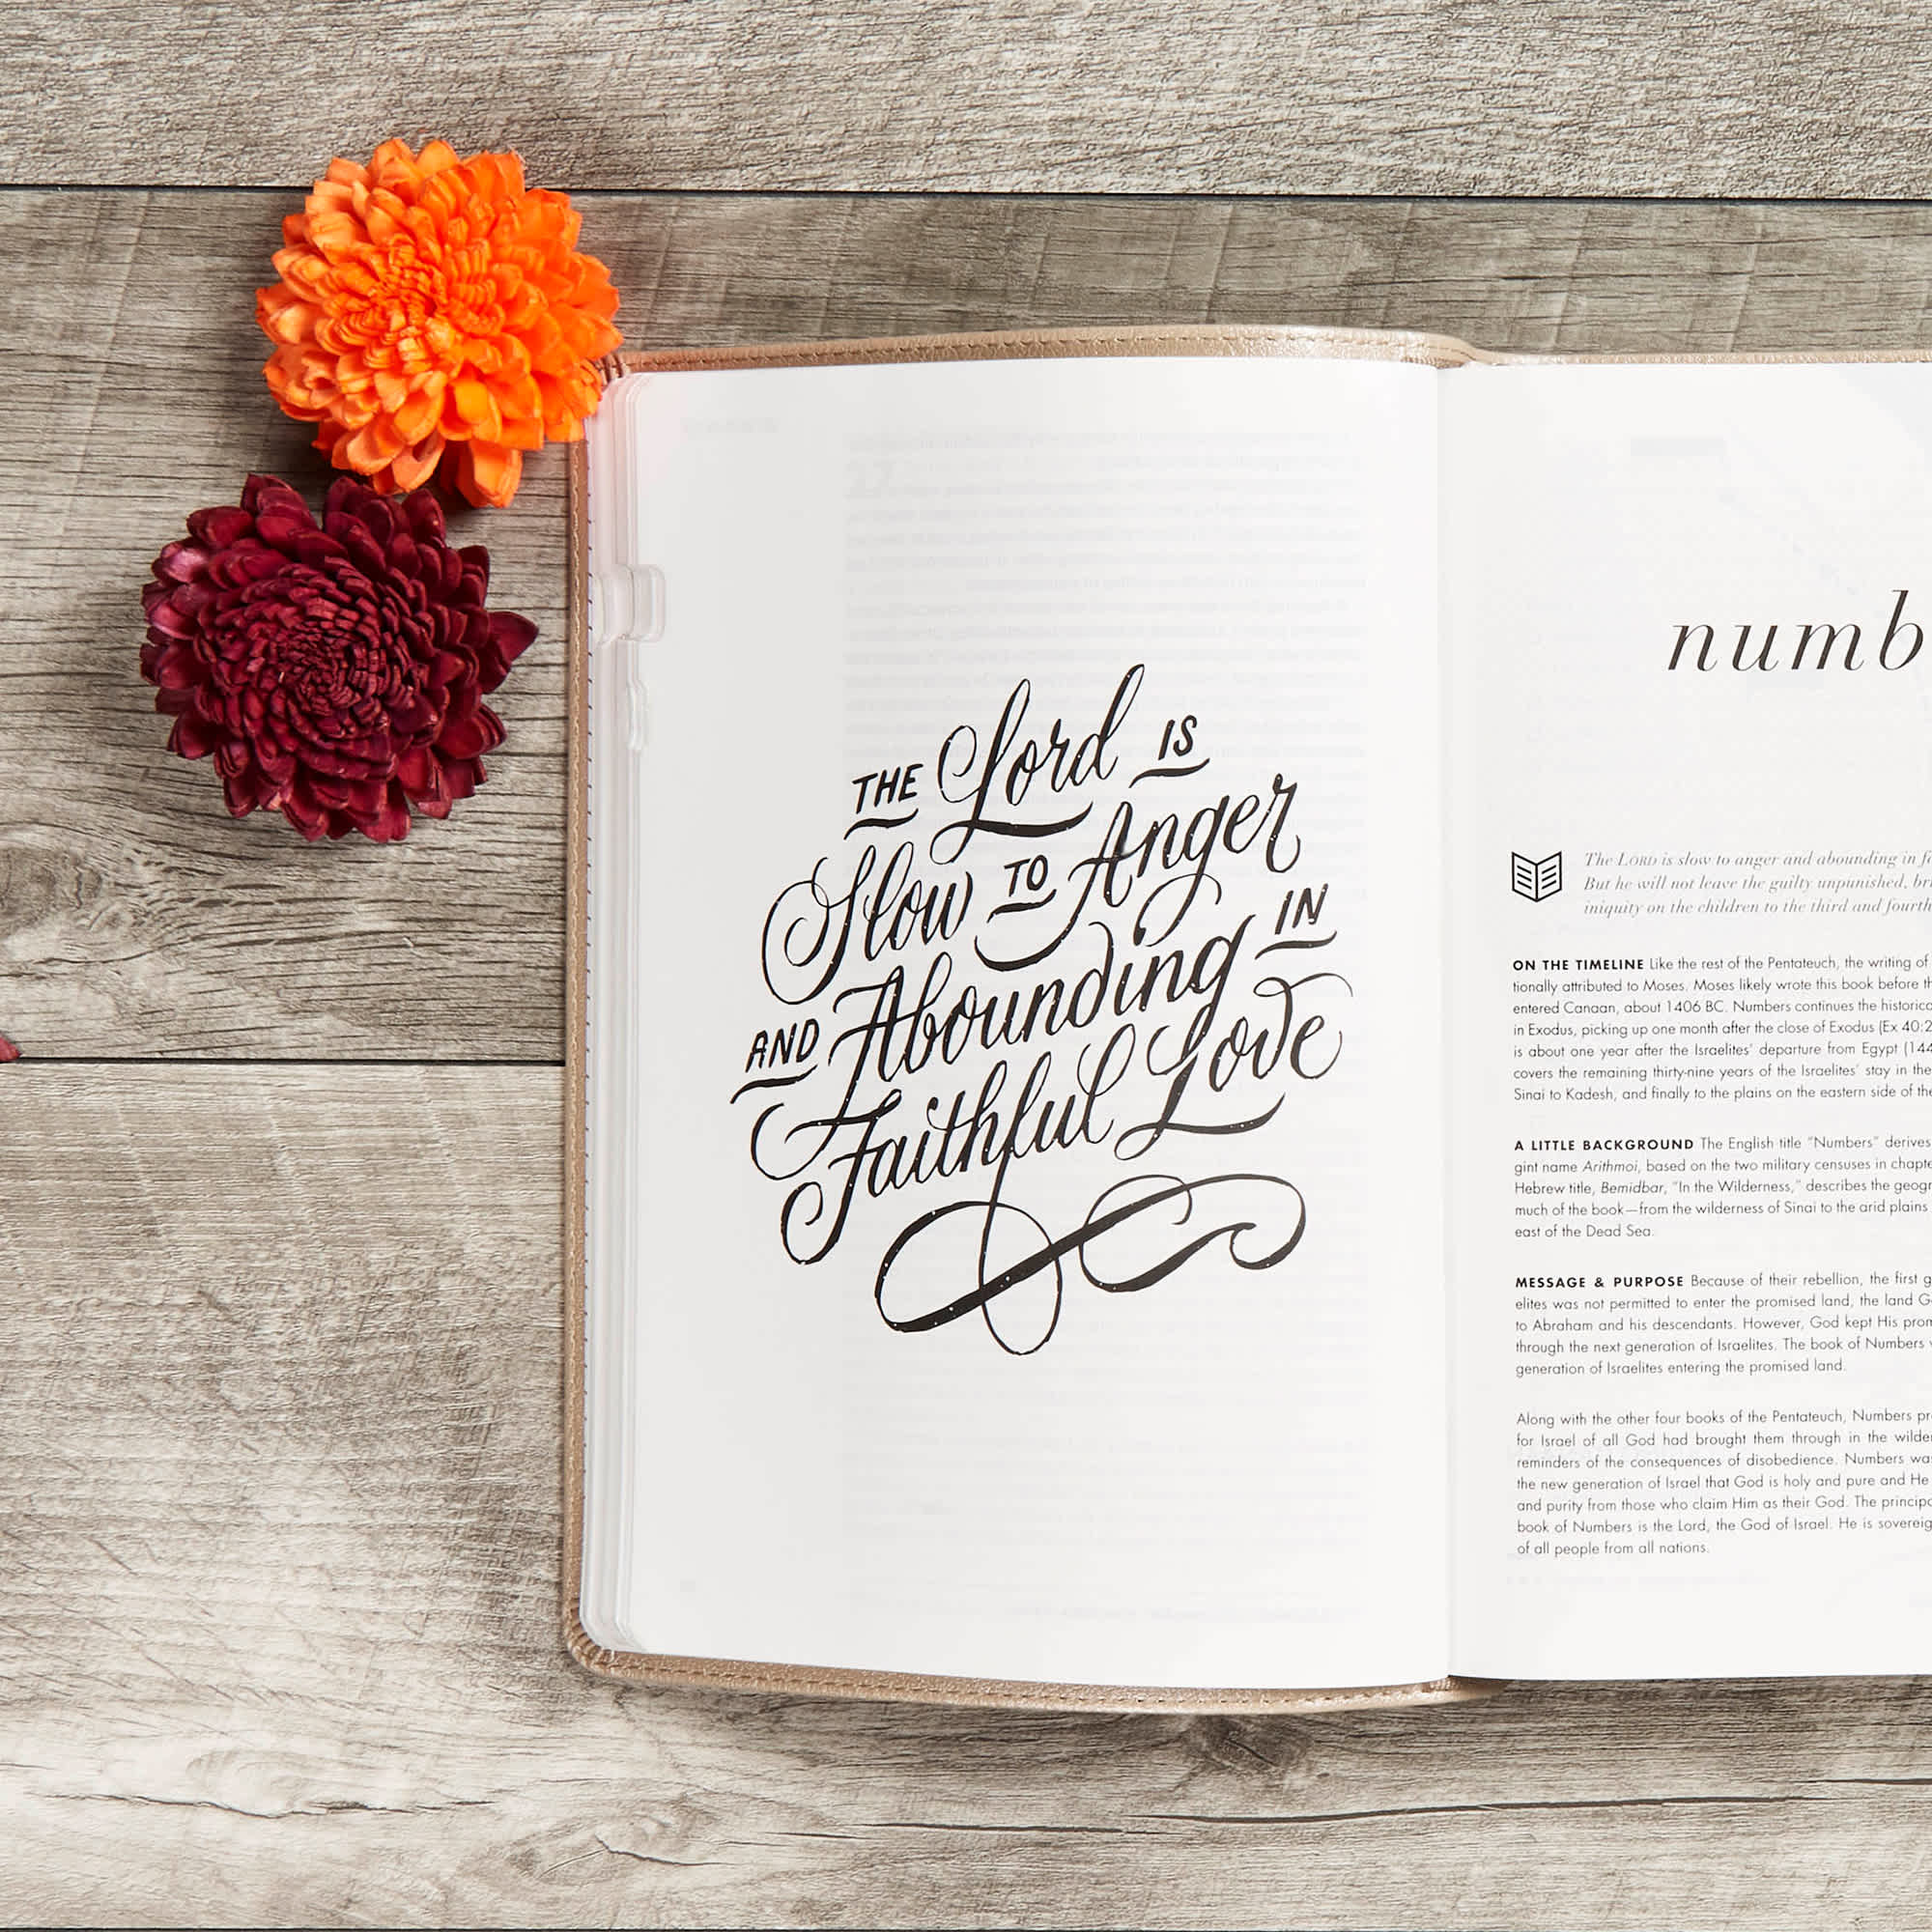 THE Lord IS
Slow TO Anger
AND Abounding IN
Faithful Love
numb
The LORD is slow to anger and abounding in
But he will not leave the guilty unpunished,
iniquity on the children to the third and fourth
ON THE TIMELINE Like the rest of the Pentateuch, the writing of
tionally attributed to Moses. Moses likely wrote this book before
entered Canaan, about 1406 BC. Numbers continues the
in Exodus, picking up one month after the close of Exodus (Ex 40:2
is about one year after the Israelites' departure from Egypt (144
covers the remaining thirty-nine years of the Israelites' stay in the
Sinai to Kadesh, and finally to the plains on the eastern side of the
A LITTLE BACKGROUND The English title "Numbers" derives
gint name Arithmoi, based on the two military censuses in
Hebrew title, Bemidbar, "In the Wilderness," describes the
much of the book—from the wilderness of Sinai to the arid plains
east of the Dead Sea.
MESSAGE & PURPOSE Because of their rebellion, the first g
elites was not permitted to enter the promised land, the land G
to Abraham and his descendants. However, God kept His
through the next generation of Israelites. The book of Numbers
generation of Israelites entering the promised land.
Along with the other four books of the Pentateuch, Numbers pr
for Israel of all God had brought them through in the
reminders of the consequences of disobedience. Numbers
the new generation of Israel that God is holy and pure and He
and purity from those who claim Him as their God. The
book of Numbers is the Lord, the God of Israel. He is
of all people from all nations.